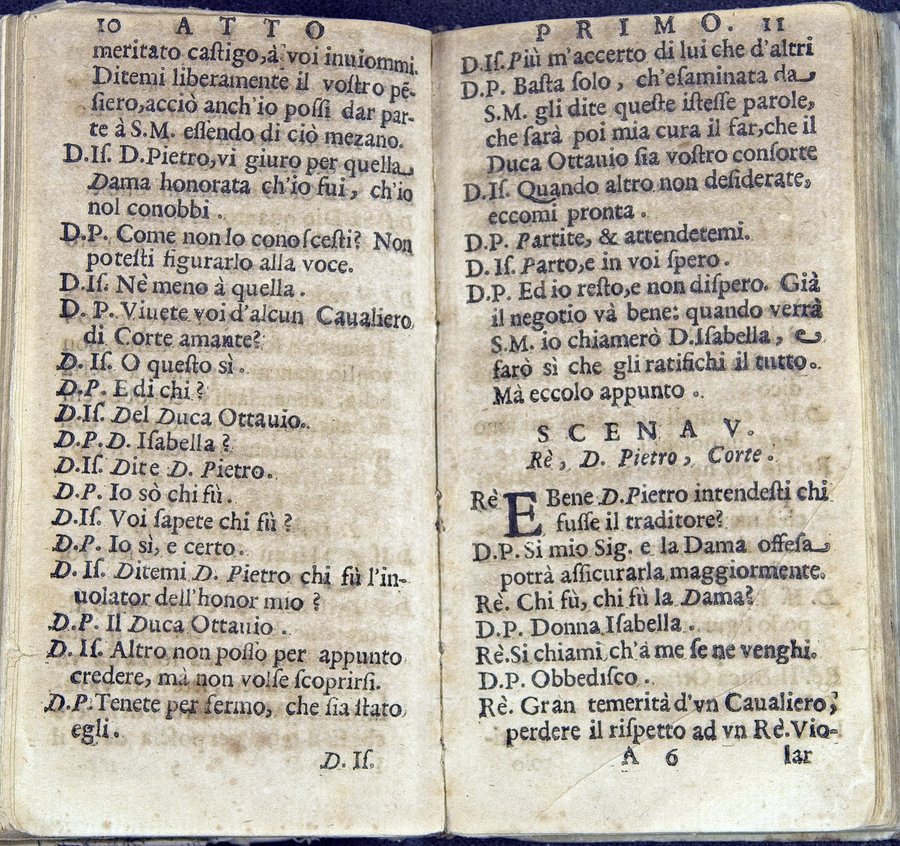 10 ATTO
meritato castigo,à voi inuiommi.
Ditemi liberamente il vostro pē-
siero,acciò anch'io possi dar par-
te à S.M. essendo di ciò mezano.
D.Is. D.Pietro,vi giuro per quella
Dama honorata ch'io fui, ch'io
nol conobbi.
D.P. Come non lo conoscesti? Non
potesti figurarlo alla voce.
D.Is. Nè meno à quella.
D. P. Viuete voi d'alcun Caualiero
di Corte amante?
D. Is. O questo sì.
D.P. E di chi?
D.Is. Del Duca Ottauio.
D.P. D. Isabella?
D.Is. Dite D. Pietro.
D.P. Io sò chi fù.
D.Is. Voi sapete chi fù?
D.P. Io sì, e certo.
D. Is. Ditemi D. Pietro chi fù l'in-
uolator dell'honor mio?
D.P. Il Duca Ottauio.
D. Is. Altro non posso per appunto
credere, mà non volse scoprirsi.
D.P. Tenete per fermo, che sia stato
egli.
D. Is.
PRIMO. 11
D.Is. Più m'accerto di lui che d'altri
D.P. Basta solo, ch'esaminata da
S.M. gli dite queste istesse parole,
che sarà poi mia cura il far,che il
Duca Ottauio sia vostro consorte
D.Is. Quando altro non desiderate,
eccomi pronta.
D.P. Partite, & attendetemi.
D. Is. Parto,e in voi spero.
D.P. Ed io resto,e non dispero. Già
il negotio và bene: quando verrà
S.M. io chiamerò D.Isabella, e
farò sì che gli ratifichi il tutto.
Mà eccolo appunto.
SCENA V.
Rè, D. Pietro, Corte.
Rè E Bene D.Pietro intendesti chi
fusse il traditore?
D.P. Si mio Sig. e la Dama offesa
potrà assicurarla maggiormente.
Rè. Chi fù, chi fù la Dama?
D.P. Donna Isabella.
Rè. Si chiami ch'à me se ne venghi.
D.P. Obbedisco.
Rè. Gran temerità d'vn Caualiero,
perdere il rispetto ad vn Rè. Vio-
A 6 lar